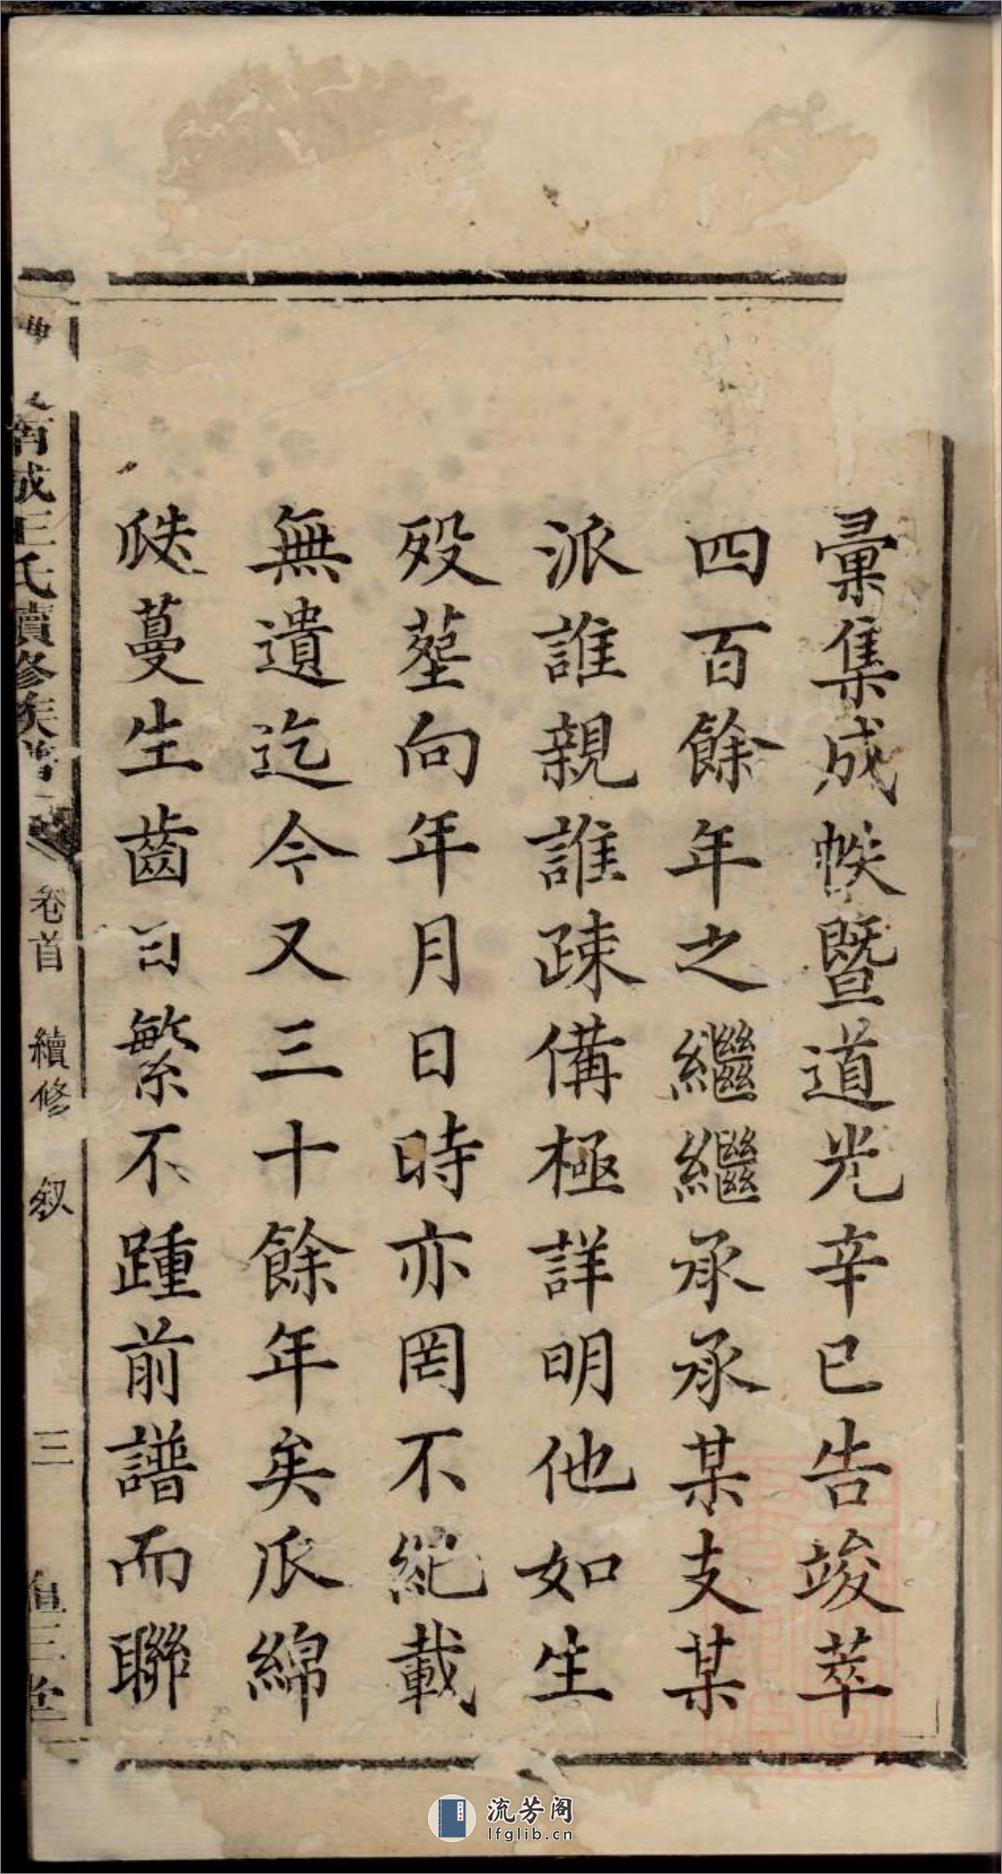 彙集成帙暨道光辛巳告竣萃
四百餘年之繼繼承承某支某
派誰親誰疎備極詳明他如生
歿塟向年月日時亦罔不紀載
無遺迄今又三十餘年矣瓜綿
瓞蔓生齒日繁不踵前譜而聯
南城王氏續修族譜
卷首
續修
叙
三
三
堂
流芳阁
lfglib.cn